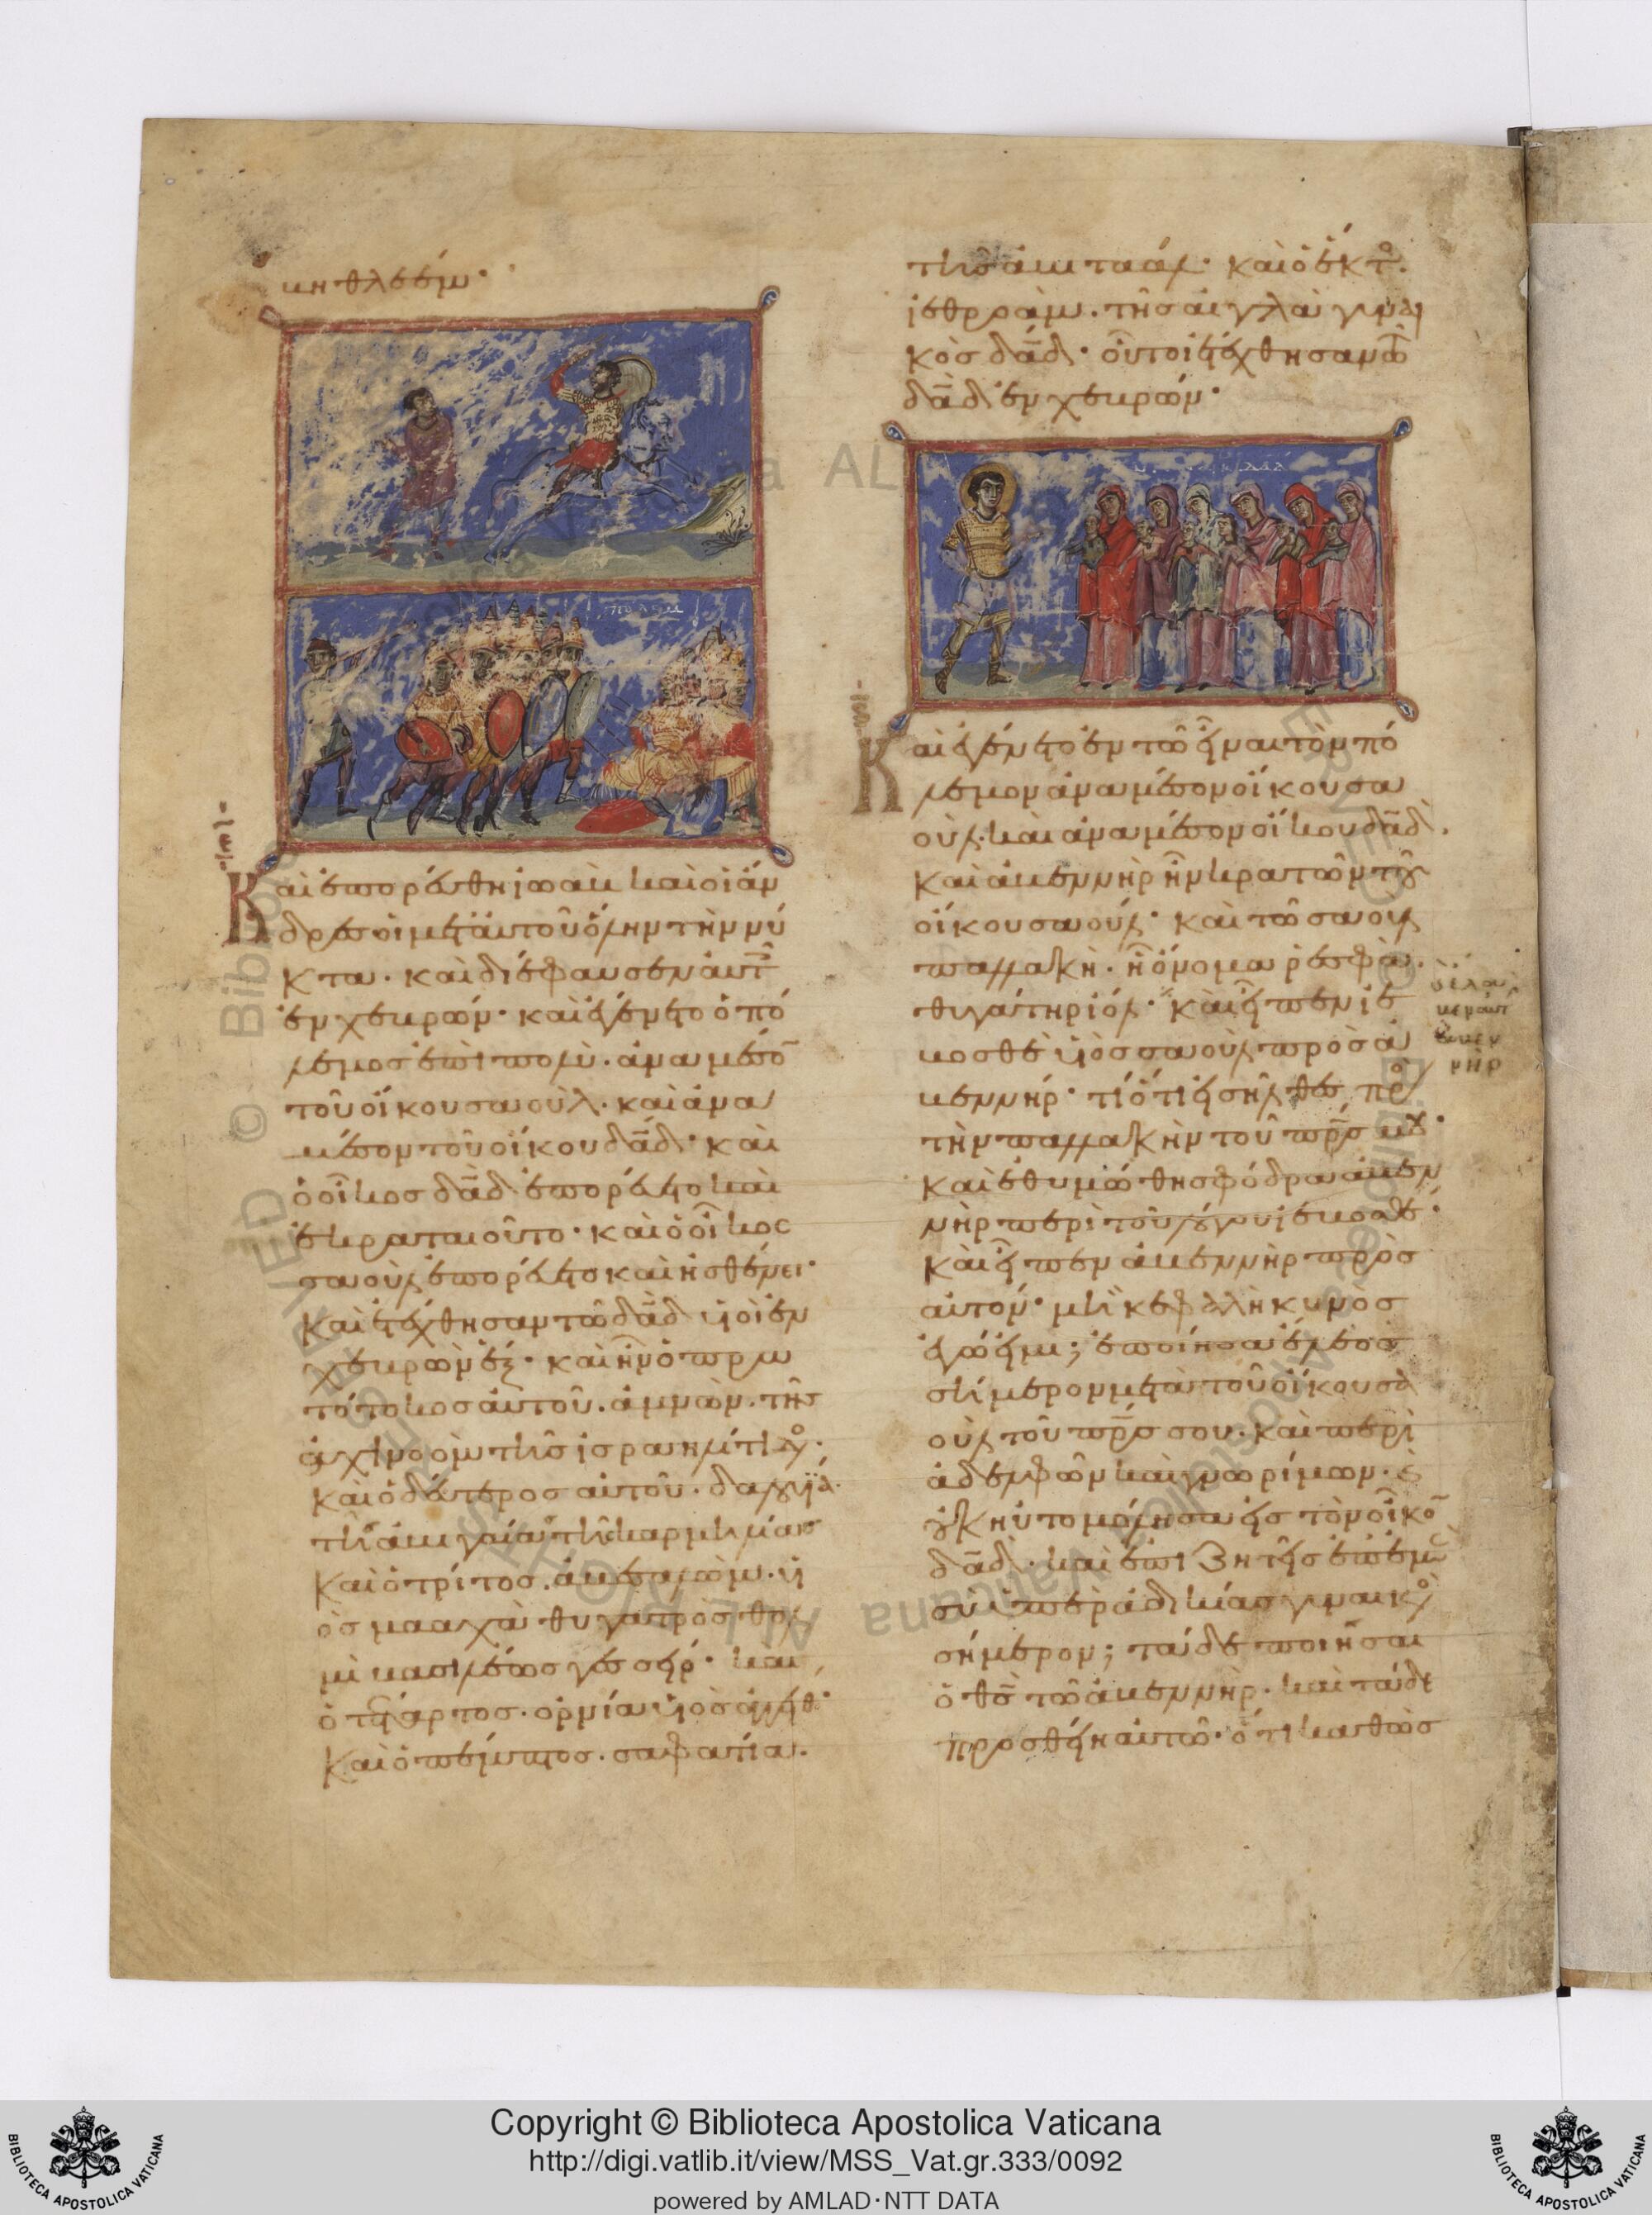 βηθλεέμ·
Καὶ ἐπορεύθη ἰωαβ καὶ οἱ ἄν
δρες οἱ μετ' αὐτοῦ ὅλην τὴν νύ
κτα. καὶ διέφαυσεν αὐτοῖς
ἐν χεβρών· καὶ ἐγένετο ὁ πό
λεμος ἐπὶ πολὺ. ἀνα μέσον
τοῦ οἴκου σαουλ. καὶ ἀνα
μέσον τοῦ οἴκου δαδ· καὶ
ὁ οἶκος δαδ ἐπορεύετο καὶ
ἐκραταιοῦτο· καὶ ὁ οἶκος
σαοὺλ ἐπορεύετο καὶ ἠσθένει·
Καὶ ἐτέχθησαν τῶ δαδ υἱοὶ ἐν
χεβρὼν ἑξ· καὶ ἦν ὁ πρω
τότοκος αὐτοῦ. ἀμνὼν. τῆς
ἀχινοὸμ τῆς ἰσραηλίτιδος.
καὶ ὁ δεύτερος αὐτοῦ. δαλουϊά.
τῆς ἀβιγαίας τῆς καρμηλίας
καὶ ὁ τρίτος. ἀβεσαλὼμ. υἱ
ὸς μααχὰ θυγατρὸς θολ
μὶ βασιλέως γεσσείρ· καὶ
ὁ τέταρτος. ορνία υἱὸς
καὶ ὁ πέμπτος. σαφατία.
τῆς ἀβιταάλ· καὶ ὁ ἕκτος
ἰεθραὰμ. τῆς αἰγλὰ γυναι
κὸς δαδ· οὗτοι ἐτέχθησαν τῶ
δαδ ἐν χεβρών·
Καὶ ἐγένετο ἐν τῶ εἶναι τὸν πό
λεμον ἀνα μέσον οἴκου σα
οὺλ. καὶ ἀνα μέσον οἴκου δαδ.
καὶ ἀβεννὴρ ἦν κρατῶν τοῦ
οἴκου σαούλ· καὶ τῶ σαουλ
παλλακὴ. ἧ ὄνομα ῥεσφὰ.
θυγάτηρ ἰόλ· καὶ εἶπεν ἰε
βοσθὲ υἱὸς σαοὺλ πρὸς ἀ
βεννήρ· τί ὅτι εἰσῆλθες πρὸς
τὴν παλλακὴν τοῦ πρς μου·
καὶ ἐθυμώθη σφόδρα ἀβεν
νὴρ περὶ τοῦ λόγου ἰεβοσθέ·
καὶ εἶπεν ἀβεννὴρ πρὸς
αὐτόν· μὴ κεφαλὴ κυνὸς
ἐγώ εἰμι; ἐποίησα ἔλεος
σήμερον μετὰ τοῦ οἴκου σα
οὺλ τοῦ πρς σου. καὶ περὶ
ἀδελφῶν καὶ γνωρίμων. καὶ
οὐκ ηὐτομόλησα εἰς τὸν οἶκον
δαδ. καὶ ἐπιζητεῖς ἐπ' ἐμὲ
σὺ ὑπὲρ ἀδικίας γυναικὸς
σήμερον; τάδε ποιῆσαι
ὁ θς τῶ ἀβεννὴρ. καὶ τάδε
προσθείη αὐτῶ. ὅτι καθὼς
Copyright © Biblioteca Apostolica Vaticana
http://digi.vatlib.it/view/MSS_Vat.gr.333/0092
powered by AMLAD·NTT DATA
BIBLIOTECA APOSTOLICA VATICANA
BIBLIOTECA APOSTOLICA VATICANA